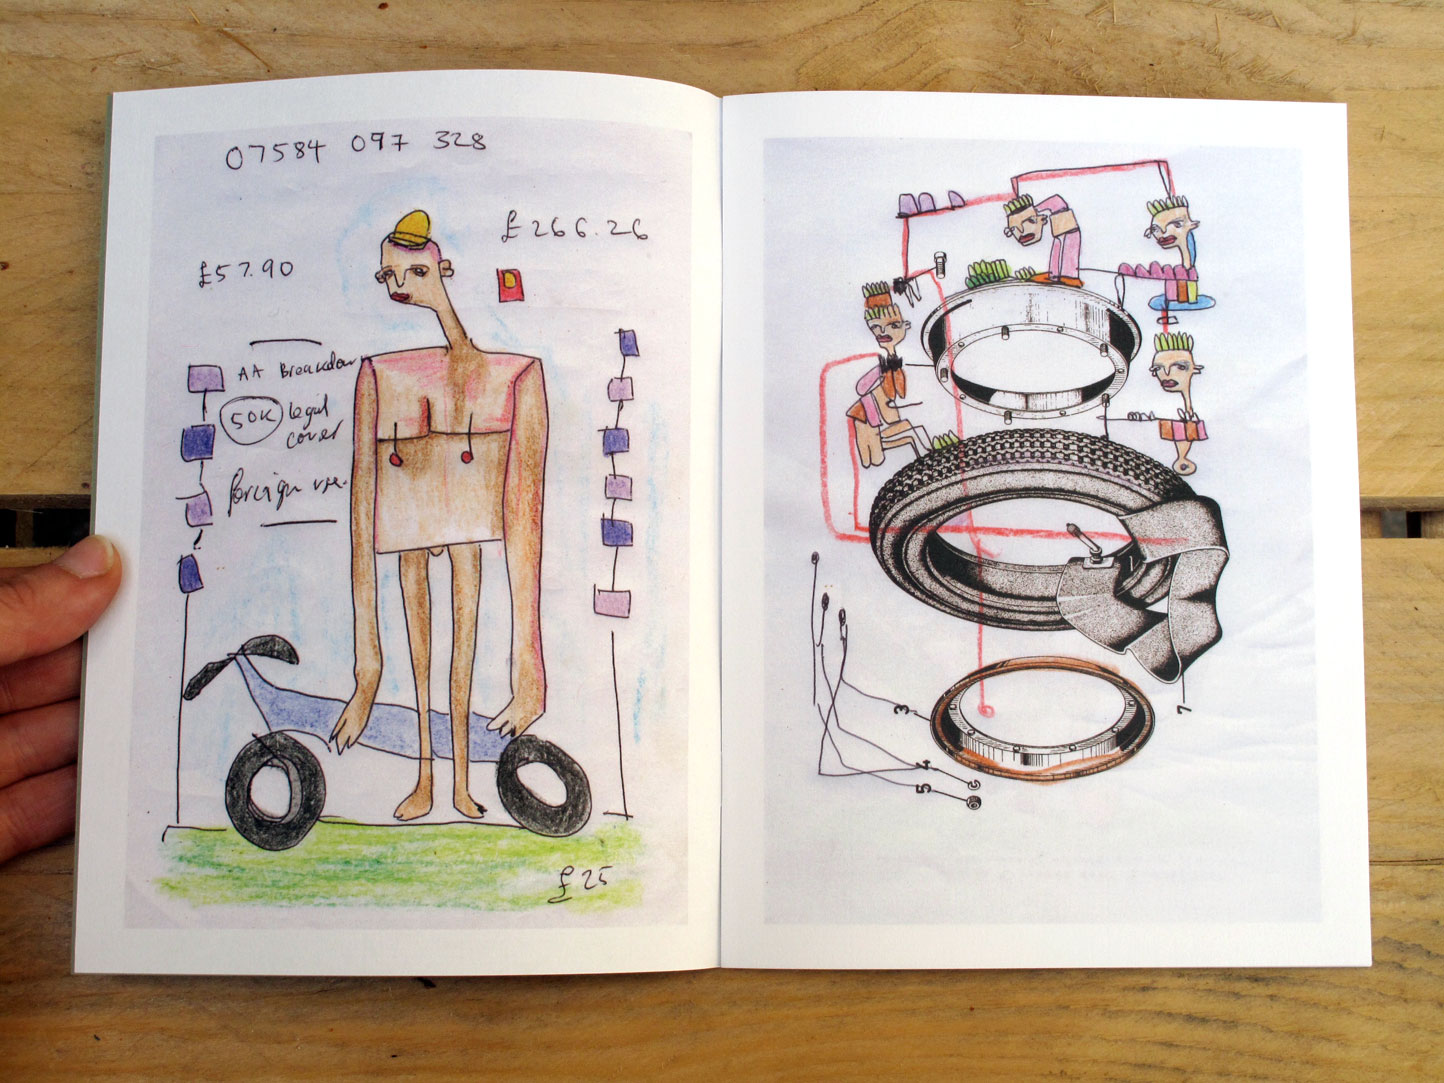 07584 097 328
£266.26
£57.90
AA Breakdown
50K legal
cover
foreign use.
£25
3
4
5
7